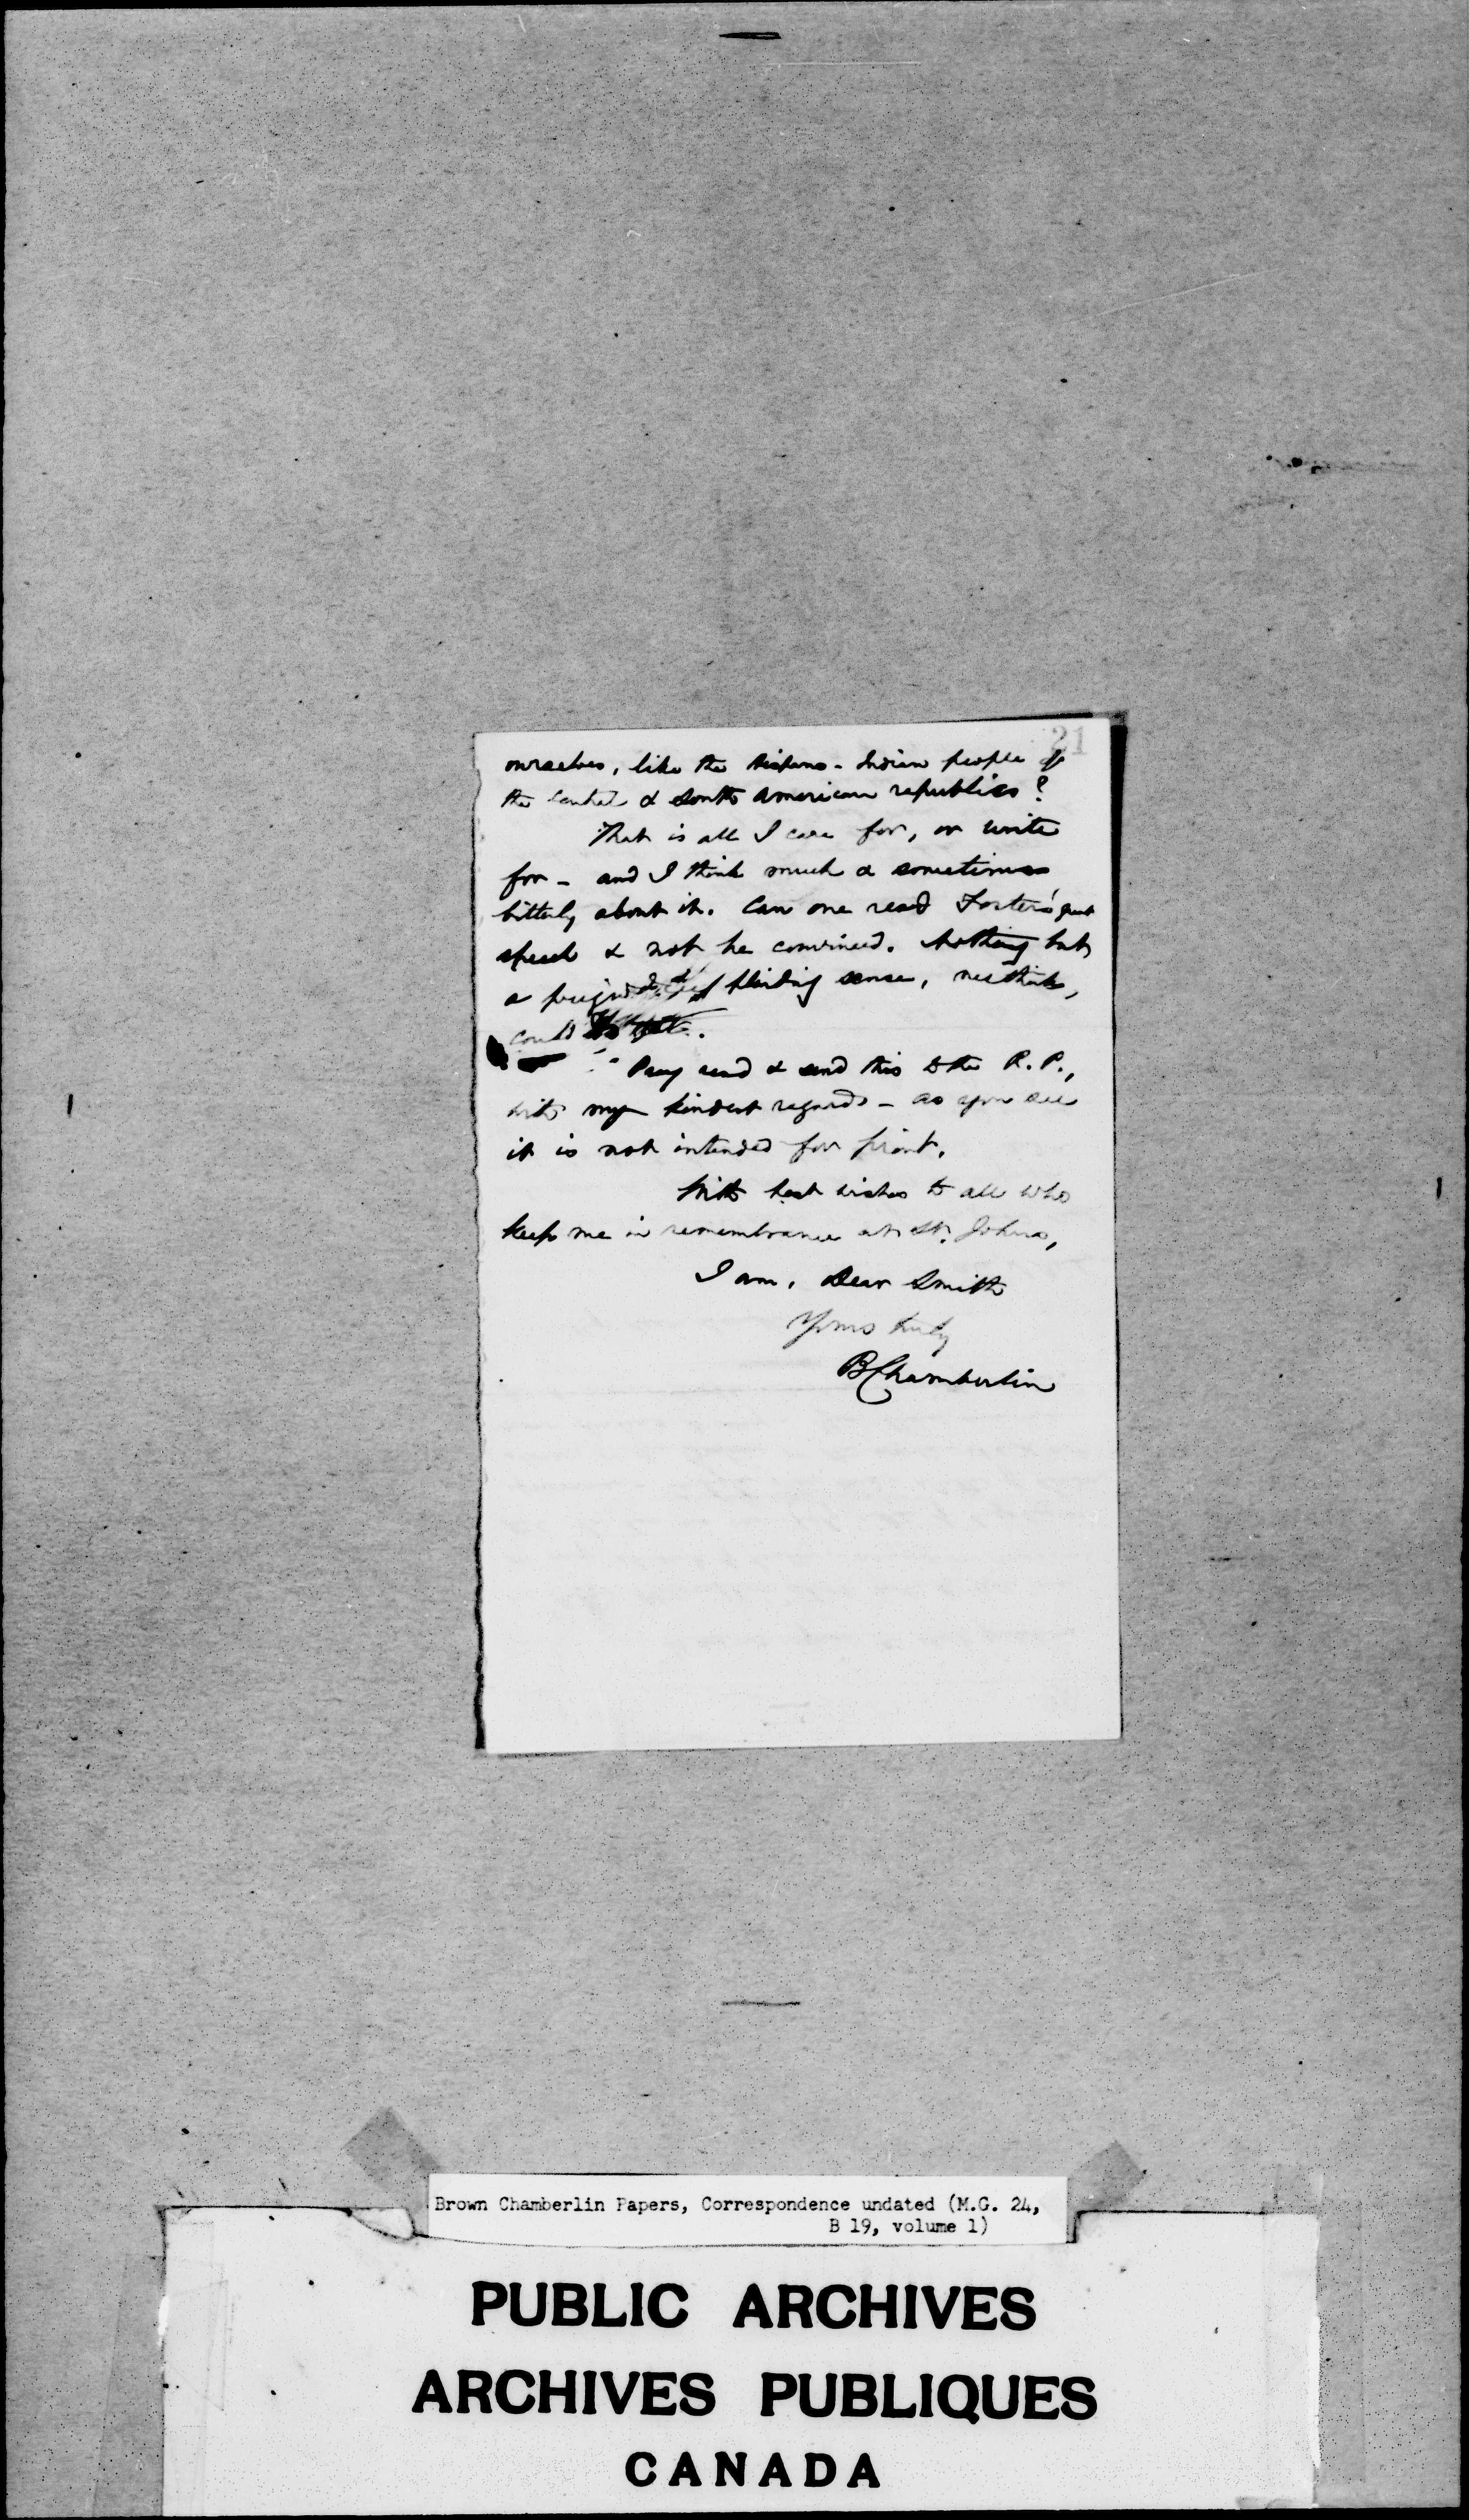 21
ourselves, like the Hispano-Indian people of
the Central & South American republics?
That is all I care for, or write
for - and I think much & sometimes
bitterly about it. Can one read Foster's great
speech & not be convinced. Nothing but
a blinding sense, methinks,
could
Pray read & send this to the R. P.,
with my kindest regards - as you see
it is not intended for print.
With best wishes to all who
keep me in remembrance at St. Johns,
I am, Dear Smith
Yours truly
B Chamberlin
Brown Chamberlin Papers, Correspondence undated (M.G. 24,
B 19, volume 1)
PUBLIC ARCHIVES
ARCHIVES PUBLIQUES
CANADA